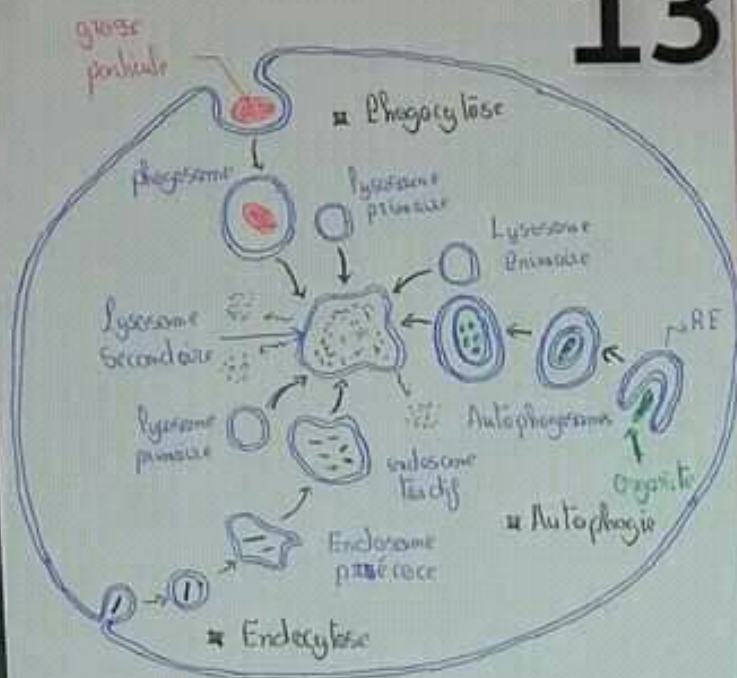 13
grosse
particule
Phagocytose
phagosome
lysosome
primaire
Lysosome
Primaire
Lysosome
Secondaire
RE
lysosome
primaire
Autophagosome
endosome
tardif
Organite
Autophagie
Endosome
précoce
Endocytose